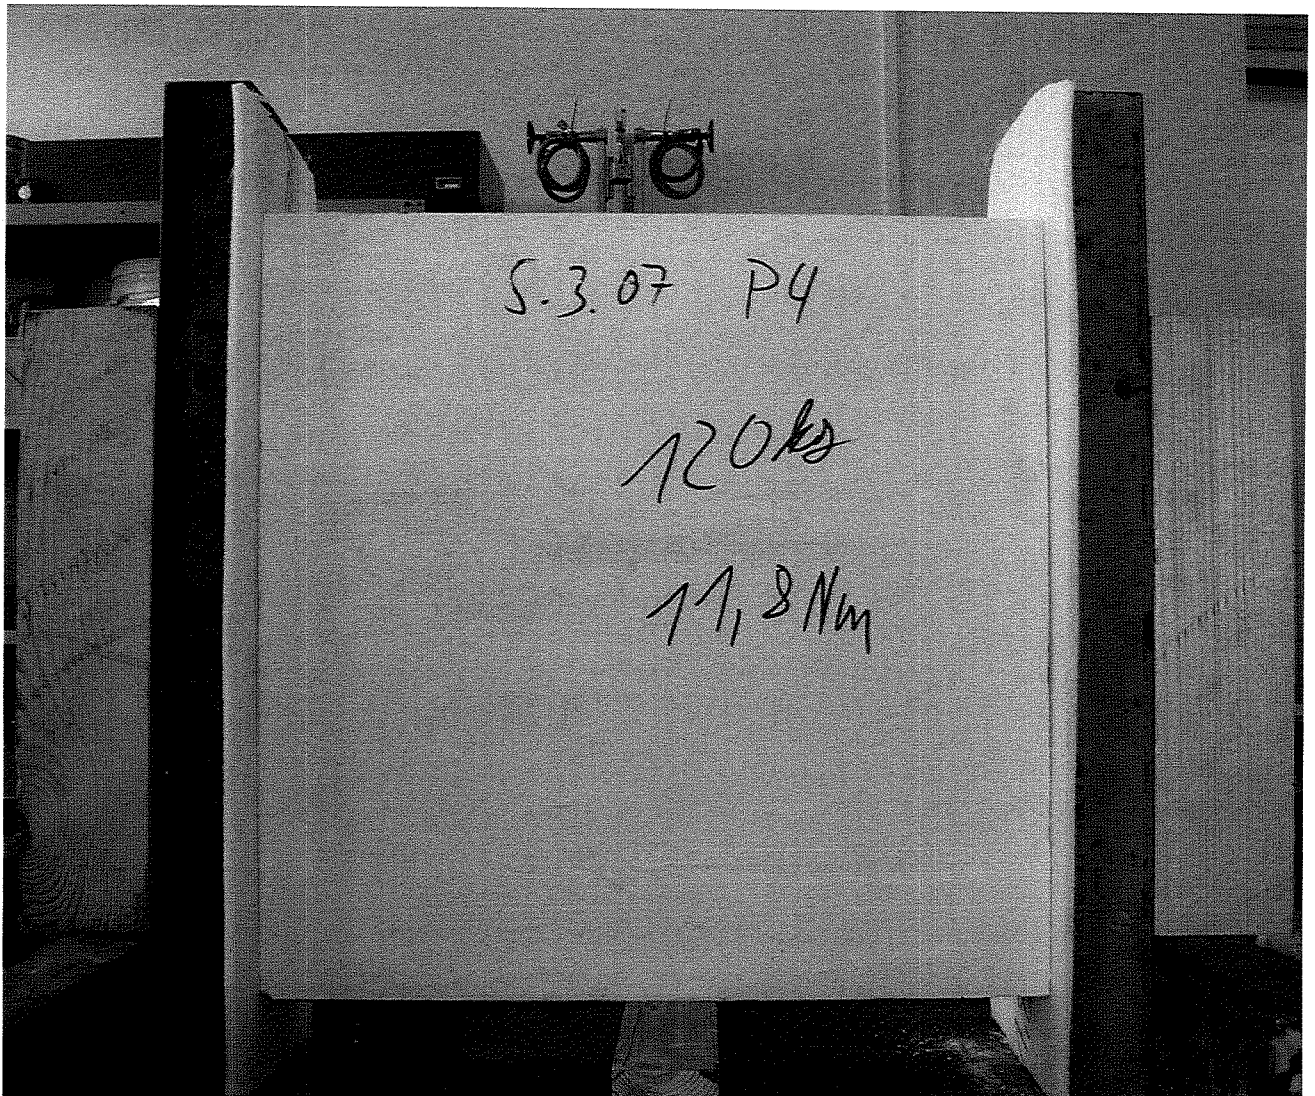 5.3.07 P4
120 kg
11,8 Nm